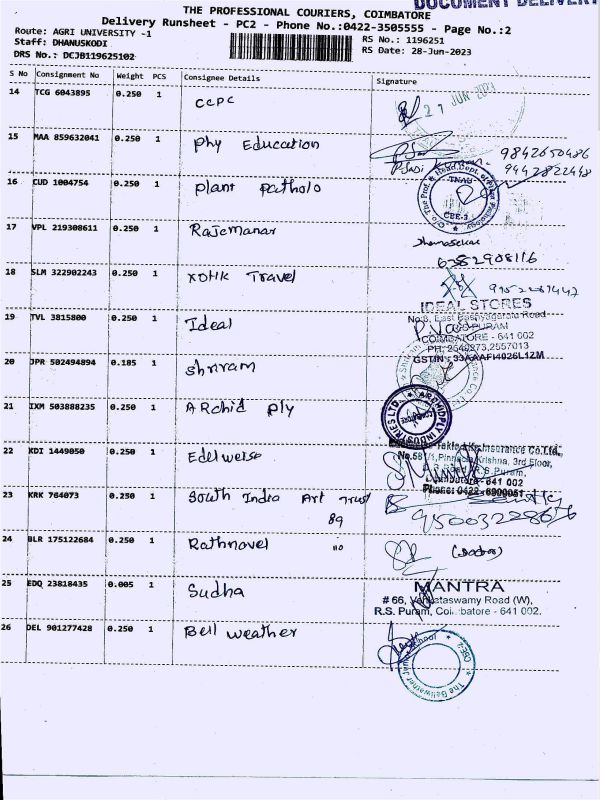 DOCUMENT DELIVERY
THE PROFESSIONAL COURIERS, COIMBATORE
Delivery Runsheet - PC2 - Phone No.:0422-3505555 - Page No.:2
Route: AGRI UNIVERSITY -1
RS No.: 1196251
Staff: DHANUSKODI
RS Date: 28-Jun-2023
DRS No.: DCJB119625102
S No Consignment No Weight PCS Consignee Details Signature
14 TCG 6043895 0.250 1 CCPC
JUN
15 MAA 859632041 0.250 1 Phy Education
9842650486
9442822448
16 CUD 1004754 0.250 1 plant patholo
TNAU
CBE-3
17 VPL 219308611 0.250 1 Rajemanar
6382908116
18 SLM 322902243 0.250 1 Travel
IDEAL STORES
19 TVL 3815800 0.250 1 Ideal
COIMBATORE - 641 002
PH: 2549273,2557013
GSTIN : 33AAAFI4026L1ZM
20 JPR 502494894 0.185 1 shriram
21 IXM 503888235 0.250 1 ARchid ply
22 KDI 1449050 0.250 1 Edelweise
Insurance Co.Ltd.,
Krishna, 3rd Floor,
R.S.Puram,
641 002
Phone: 0422-6900051
23 KRK 764073 0.250 1 South India Art Trust
89
24 BLR 175122684 0.250 1 Rathnavel
25 EDQ 23818435 0.005 1 Sudha
MANTRA
# 66, Venkataswamy Road (W),
R.S. Puram, Coimbatore - 641 002.
26 DEL 901277428 0.250 1 Bell weather